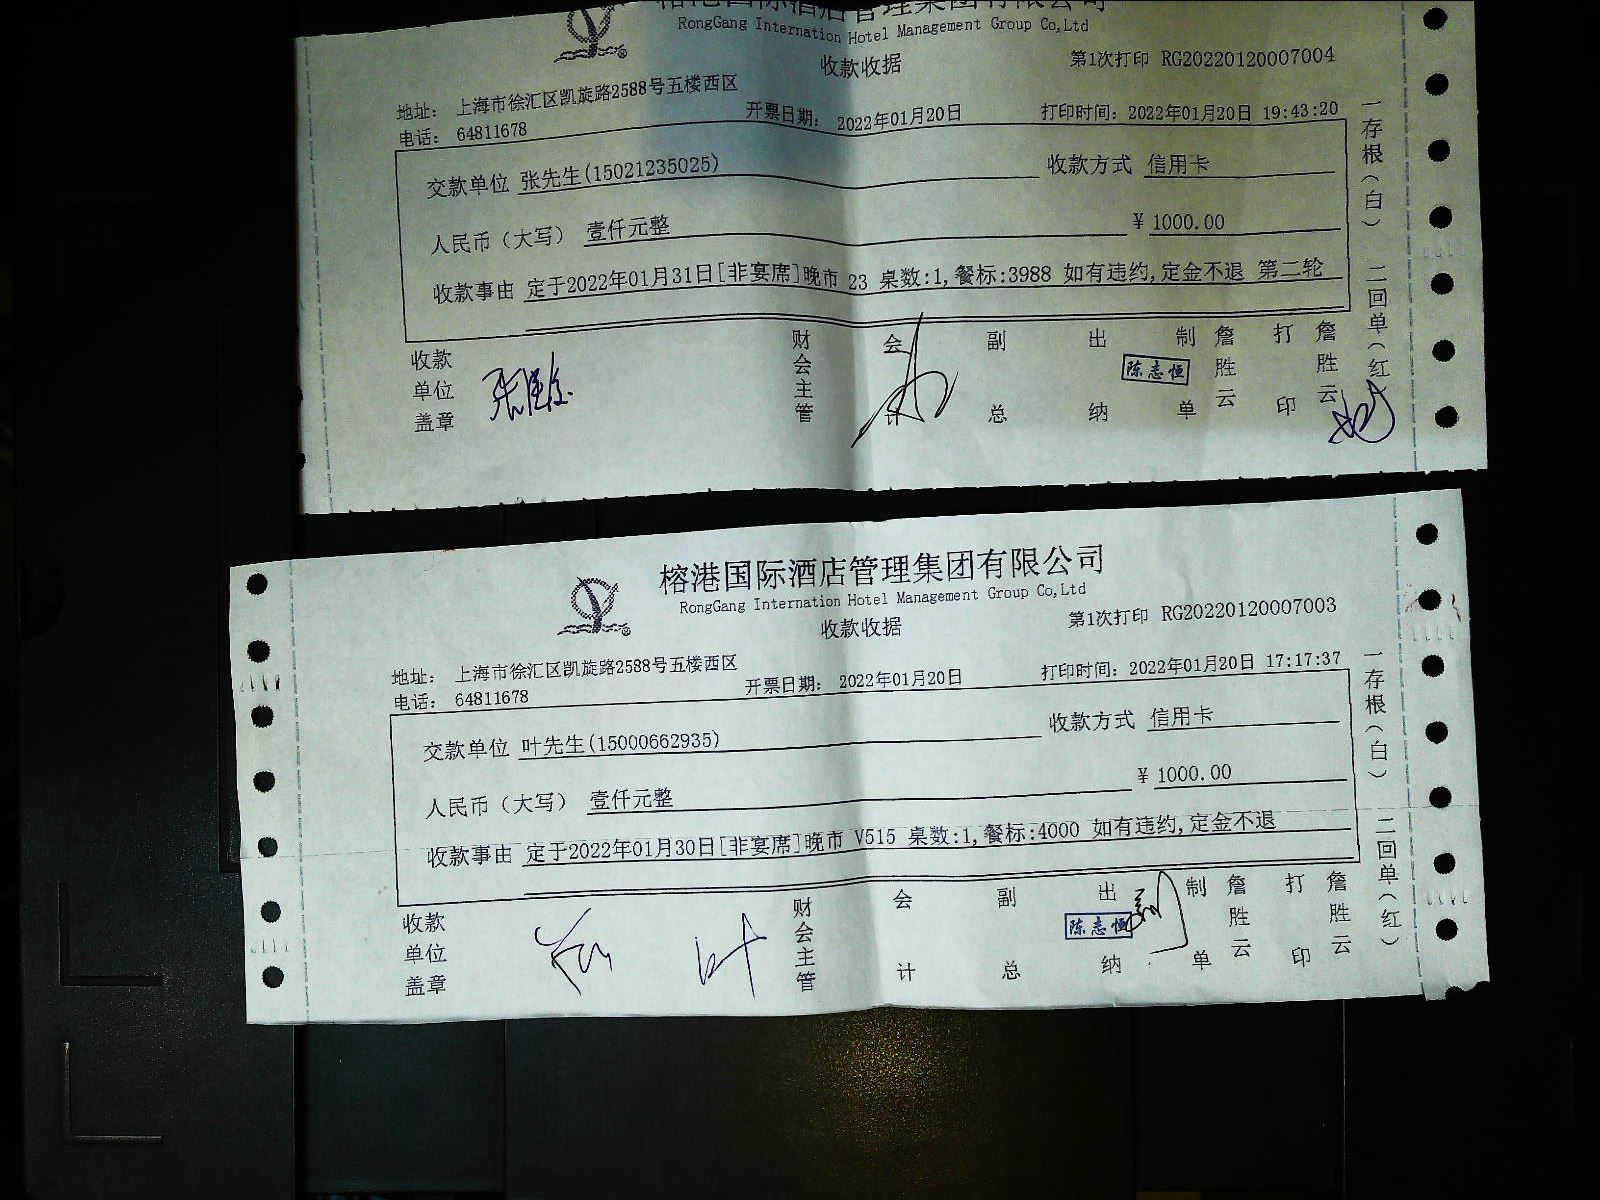 榕港国际酒店管理集团有限公司
RongGang Internation Hotel Management Group Co,Ltd
收款收据
第1次打印 RG20220120007004
地址: 上海市徐汇区凯旋路2588号五楼西区
电话: 64811678
开票日期: 2022年01月20日
打印时间: 2022年01月20日 19:43:20
交款单位 张先生(15021235025)
收款方式 信用卡
人民币(大写) 壹仟元整
¥ 1000.00
收款事由 定于2022年01月31日[非宴席]晚市 23 桌数:1,餐标:3988 如有违约,定金不退 第二轮
收款单位盖章
财会主管
会计
副总
出纳
陈志恒
制单
詹胜云
打印
詹胜云
一存根(白)
二回单(红
榕港国际酒店管理集团有限公司
RongGang Internation Hotel Management Group Co,Ltd
收款收据
第1次打印 RG20220120007003
地址: 上海市徐汇区凯旋路2588号五楼西区
电话: 64811678
开票日期: 2022年01月20日
打印时间: 2022年01月20日 17:17:37
交款单位 叶先生(15000662935)
收款方式 信用卡
人民币(大写) 壹仟元整
¥ 1000.00
收款事由 定于2022年01月30日[非宴席]晚市 V515 桌数:1,餐标:4000 如有违约,定金不退
收款单位盖章
叶
财会主管
会计
副总
出纳
陈志恒
制单
詹胜云
打印
詹胜云
一存根(白)
二回单(红)